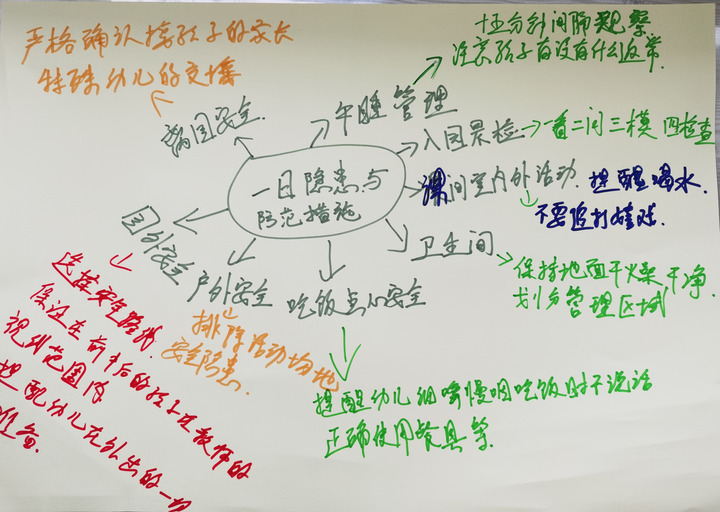 严格确认接孩子的家长
特殊幼儿的交接
离园安全
午睡管理
十五分钟间隔观察
注意孩子有没有什么反常
入园晨检
一看二问三模四检查
一日隐患与
防范措施
课间室内外活动
提醒喝水
不要追打嬉戏
卫生间
保持地面干燥 干净
划分管理区域
园外安全
选择安全路线
保证在前中后的孩子在教师的
视线范围内
提配幼儿在外出的一切
准备
户外安全
排除活动场地
安全隐患
吃饭点心安全
提醒幼儿细嚼慢咽吃饭时不说话
正确使用餐具等